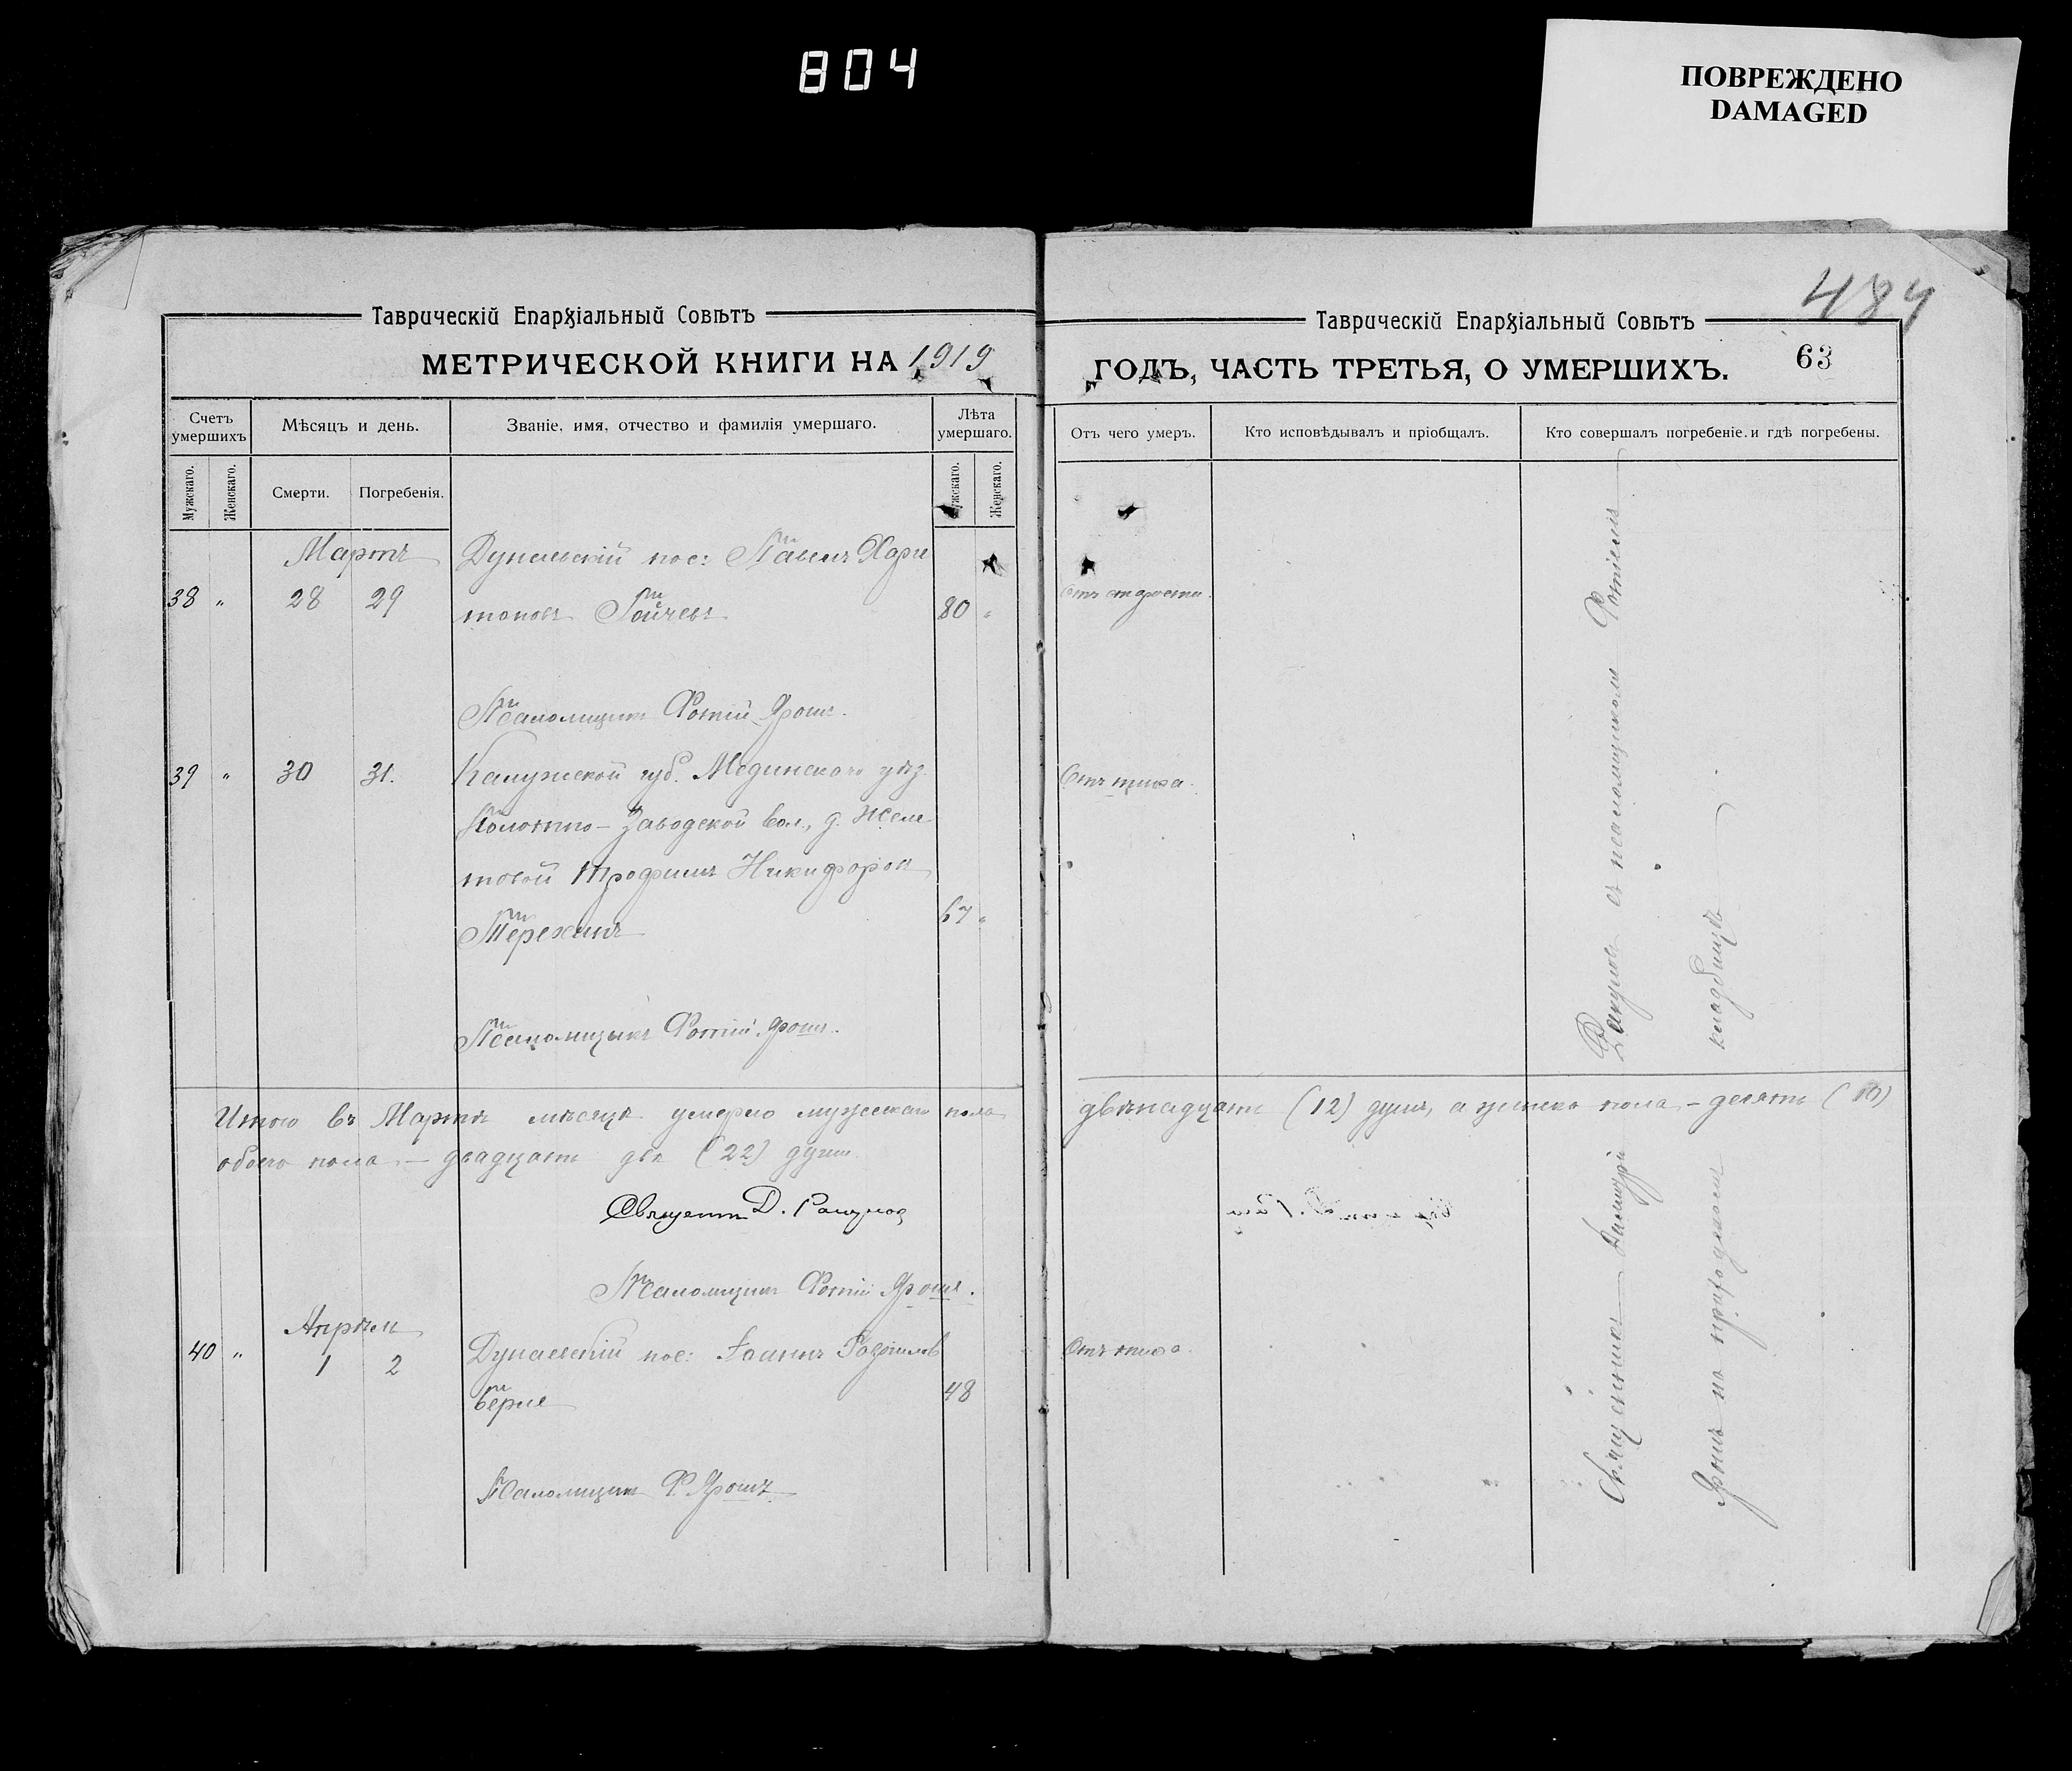 804
ПОВРЕЖДЕНО
DAMAGED
484
Таврическій Епархіальный Совѣтъ
МЕТРИЧЕСКОЙ КНИГИ НА 1919
Счетъ умершихъ
Мѣсяцъ и день.
Званіе, имя, отчество и фамилія умершаго.
Лѣта умершаго.
Мужскаго.
Женскаго.
Смерти.
Погребенія.
Мужскаго.
Женскаго.
Мартъ
Дунаевскій пос: Павелъ Хари
38 " 28 29
тоновъ 80 "
Псаломщикъ Фотій Ярошъ.
39 " 30 31.
Калужской губ. Медынскаго уѣз.
Полотно-Заводской вол., д. Желе
товой Трофимъ Никифоровъ
67 "
Псаломщикъ Фотій Ярошъ.
Итого въ Мартѣ мѣсяцѣ умерло мужескаго пола
обоего пола - двадцать двѣ (22) души.
Священникъ Д.
Псаломщикъ Фотій Ярошъ.
Апрѣль
40 " 1 2
Дунаевскій пос: Іоаннъ
48
Псаломщикъ Ф. Ярошъ
Таврическій Епархіальный Совѣтъ
ГОДЪ, ЧАСТЬ ТРЕТЬЯ, О УМЕРШИХЪ.
63
Отъ чего умеръ.
Кто исповѣдывалъ и пріобщалъ.
Кто совершалъ погребеніе и гдѣ погребены.
Отъ старости.
Отъ тифа.
двѣнадцать (12) душъ, а женска пола - десять (10)
Отъ тифа.
Священникъ Димитрій съ псаломщикомъ Фотіемъ
Ярошъ на приходскомъ кладбищѣ